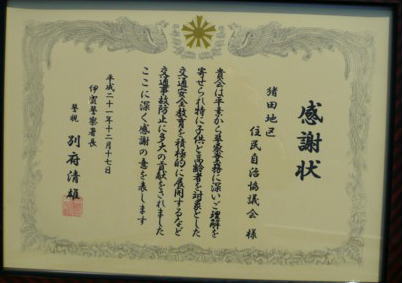 感謝状
猪田地区
住民自治協議会 様
貴会は平素から警察業務に深いご理解を
寄せられ特に子供と高齢者を対象とした
交通安全教育を積極的に展開するなど
交通事故防止に多大の貢献をされました
ここに深く感謝の意を表します
平成二十一年十二月十七日
伊賀警察署長
警視 別府清雄